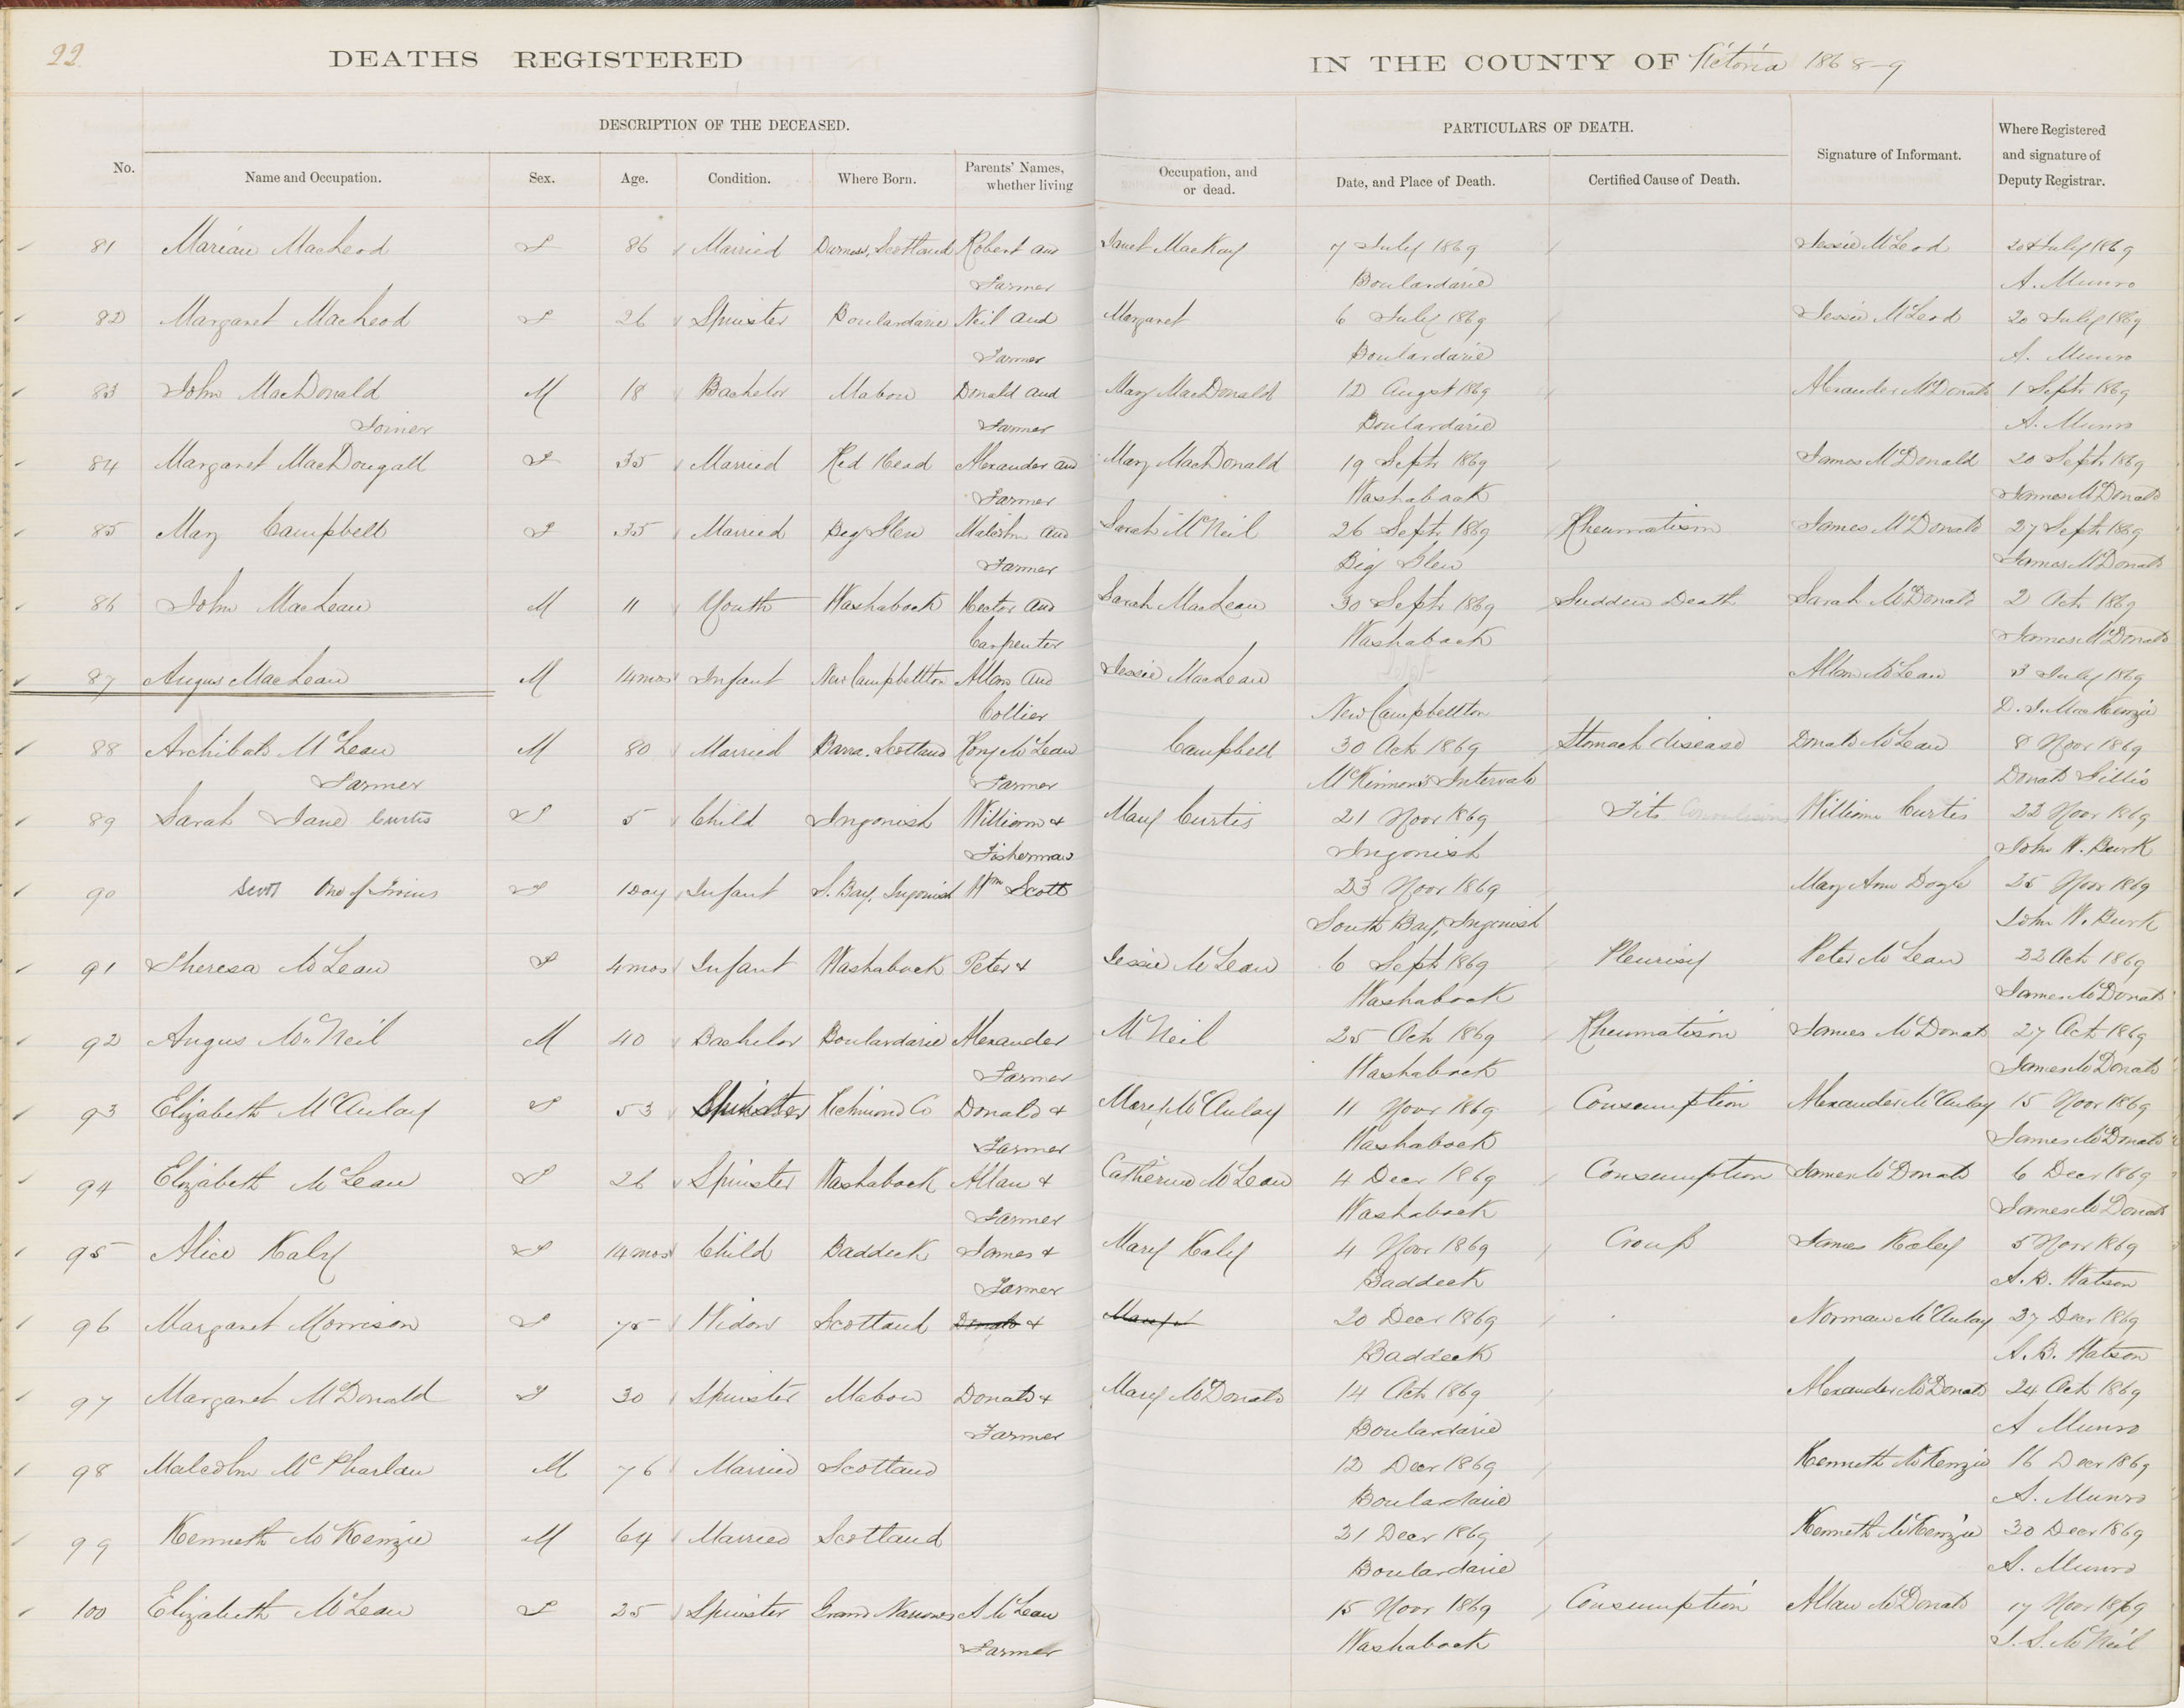 22
DEATHS REGISTERED IN THE COUNTY OF Victoria 1868-9
DESCRIPTION OF THE DECEASED. PARTICULARS OF DEATH.
No. Name and Occupation. Sex. Age. Condition. Where Born. Parents' Names, whether living Occupation, and or dead. Date, and Place of Death. Certified Cause of Death. Signature of Informant. Where Registered and signature of Deputy Registrar.
81 Marian MacLeod F 86 Married Durness, Scotland Robert and Janet MacKay 7 July 1869 Jessie McLeod 20 July 1869
Farmer Boulardarie A. Munro
82 Margaret MacLeod F 26 Spinster Boulardarie Neil and Margaret 6 July 1869 Jessie McLeod 20 July 1869
Farmer Boulardarie A. Munro
83 John MacDonald M 18 Bachelor Mabou Donald and Mary MacDonald 12 August 1869 Alexander McDonald 1 Sept 1869
Joiner Farmer Boulardarie A. Munro
84 Margaret MacDougall F 35 Married Red Head Alexander and Mary MacDonald 19 Sept 1869 James McDonald 20 Sept 1869
Farmer Washaback James McDonald
85 Mary Campbell F 35 Married Big Glen Malcolm and Sarah McNeil 26 Sept 1869 Rheumatism James McDonald 27 Sept 1869
Farmer Big Glen James McDonald
86 John MacLean M 11 Youth Washaback Hector and Sarah MacLean 30 Sept 1869 Sudden Death Sarah McDonald 2 Oct 1869
Carpenter Washaback James McDonald
87 Angus MacLean M 14 mos Infant New Campbellton Allan and Jessie MacLean Sept Allan McLean 3 July 1869
Collier New Campbellton D. J. MacKenzie
88 Archibald McLean M 80 Married Barra, Scotland Rory McLean Campbell 30 Oct 1869 Stomach disease Donald McLean 8 Novr 1869
Farmer Farmer McKinnon's Intervale Donald Gillis
89 Sarah Jane Curtis F 5 Child Ingonish William & Mary Curtis 21 Novr 1869 Fits Convulsions William Curtis 22 Novr 1869
Fisherman Ingonish John W. Burk
90 Scott One of Twins F 1 Day Infant S. Bay, Ingonish Wm Scott 23 Novr 1869 Mary Ann Doyle 25 Novr 1869
South Bay, Ingonish John W. Burk
91 Theresa McLean F 4 mos Infant Washaback Peter & Jessie McLean 6 Sept 1869 Pleurisy Peter McLean 22 Oct 1869
Washaback James McDonald
92 Angus McNeil M 40 Bachelor Boulardarie Alexander McNeil 25 Oct 1869 Rheumatism James McDonald 27 Oct 1869
Farmer Washaback James McDonald
93 Elizabeth McAulay F 53 Spinster Richmond Co Donald & Mary McAulay 11 Novr 1869 Consumption Alexander McAulay 15 Novr 1869
Farmer Washaback James McDonald
94 Elizabeth McLean F 26 Spinster Washaback Allan & Catherine McLean 4 Decr 1869 Consumption James McDonald 6 Decr 1869
Farmer Washaback James McDonald
95 Alice Kaly F 14 mos Child Baddeck James & Mary Kaly 4 Novr 1869 Croup James Kaley 5 Novr 1869
Farmer Baddeck A. B. Watson
96 Margaret Morrison F 75 Widow Scotland Donald & Mary 20 Decr 1869 Norman McAulay 27 Decr 1869
Baddeck A. B. Watson
97 Margaret McDonald F 30 Spinster Mabou Donald & Mary McDonald 14 Oct 1869 Alexander McDonald 24 Oct 1869
Farmer Boulardarie A Munro
98 Malcolm McPharlan M 76 Married Scotland 12 Decr 1869 Kenneth McKenzie 16 Decr 1869
Boulardarie A. Munro
99 Kenneth McKenzie M 64 Married Scotland 21 Decr 1869 Kenneth McKenzie 30 Decr 1869
Boulardarie A. Munro
100 Elizabeth McLean F 25 Spinster Grand Narrows A McLean 15 Novr 1869 Consumption Allan McDonald 17 Novr 1869
Farmer Washaback J. S. McNeil